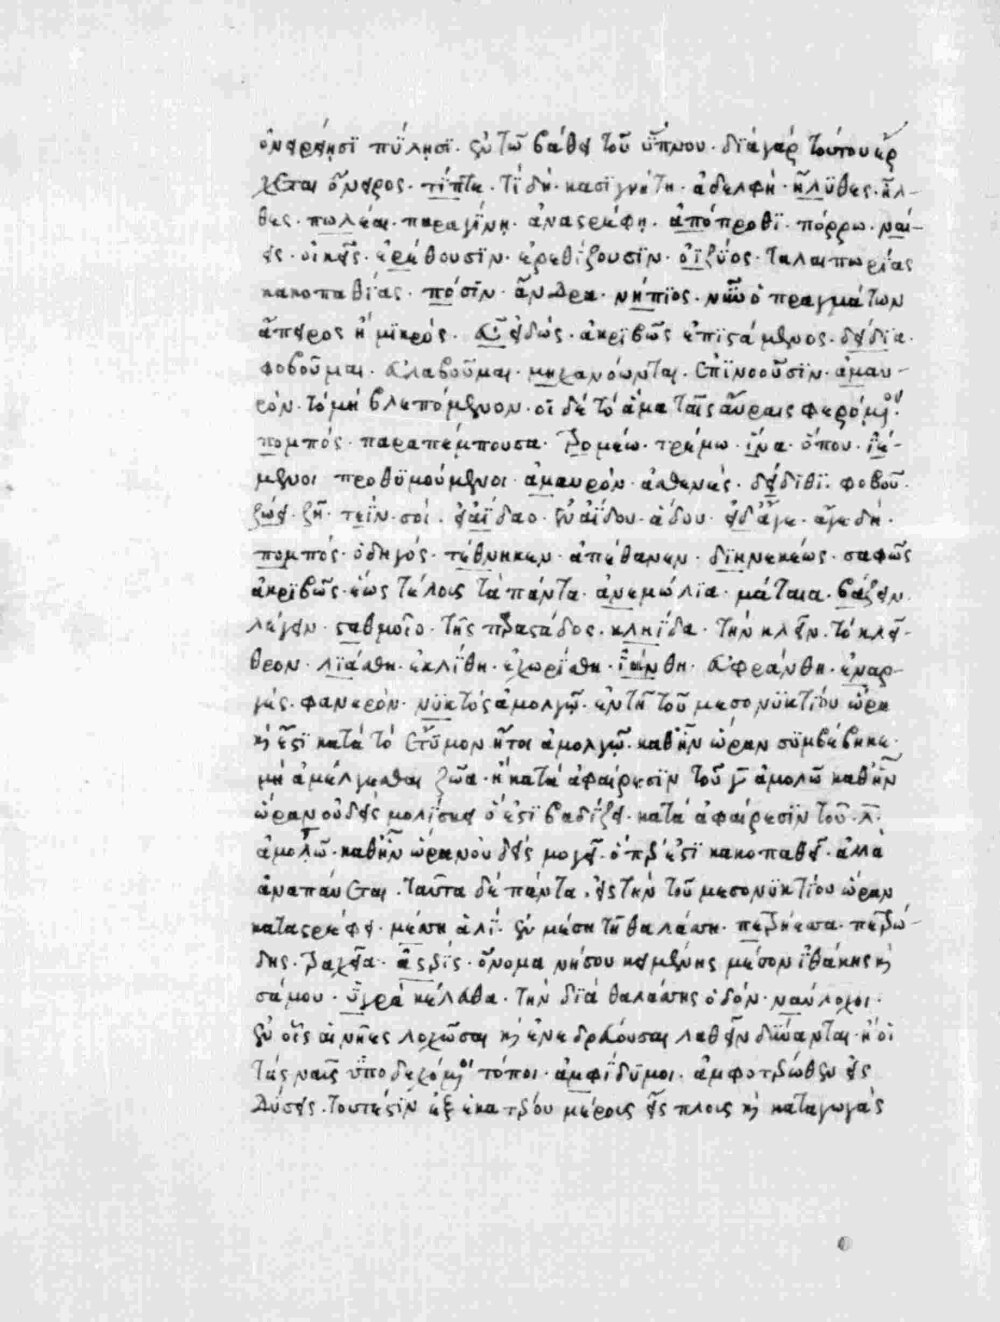 ὀνειρείησϊ πύλησϊ· ἐν τῶ βάθει τοῦ ὕπνου· δϊὰ γὰρ τούτου ἔρ
χεται ὄνειρος· τίπτε· τί δή· κασϊγνήτη· ἀδελφή· ἤλϋθες· ἦλ-
θες· πωλέαι· παραγίνη· ἀναστρέφη· ἀπόπροθϊ· πόρρω· ναί-
εις· οἰκεῖς· ἐρέθουσϊν· ἐρεθίζουσϊν· ὀϊζύος· ταλαιπωρίας
κακοπαθΐας· πόσϊν· ἄνδρα· νήπϊος· νῦν ὁ πραγμάτων
ἄπειρος ἢ μϊκρός· εὖ εἰδώς· ἀκρϊβῶς ἐπϊστάμενος· δείδϊα·
φοβοῦμαι· εὐλαβοῦμαι· μηχανόωνται· ἐπϊνοοῦσϊν· ἀμαυ-
ρόν· τὸ μὴ βλεπόμενον· οἱ δὲ τὸ ἅμα ταῖς αὔραις φερόμενον·
πομπός· παραπέμπουσα· τρομέω· τρέμω· ἵνα· ὅπου· ἱέ-
μενοι προθϋμούμενοι· ἀμαυρόν· ἀσθενές· δείδϊθϊ· φοβοῦ·
ζώει· ζῆ· τεΐν· σοί· εἰν ἀΐδαο· ἐν ἀΐδου· ἅδου· εἰ δ' ἄγε· ἄγε δή·
πομπός· ὁδηγός· τέθνηκεν· ἀπέθανεν· δϊηνεκέως· σαφῶς
ἀκρϊβῶς· ἕως τέλους τὰ πάντα· ἀνεμώλϊα· μάταια· βάζειν·
λέγειν· σταθμοῖο· τῆς παραστάδος· κληΐδα· τὴν κλεῖν· τὸ κλεῖ-
θρον· λϊάσθη· ἐκλίθη· ἐχωρίσθη· ϊάνθη· εὐφράνθη· ἐναρ-
γές· φανερόν· νϋκτὸς ἀμολγῶ· ἐν τῆ τοῦ μεσονϋκτίου ὥρα
κὶ ἔστϊ κατὰ τὸ ἔτϋμον ἤτοι ἀμολγῶ· καθ' ἣν ὥραν σϋμβέβηκε·
μὴ ἀμέλγεσθαι ζῶα· ἢ κατὰ ἀφαίρεσϊν τοῦ γ̄ ἀμολῶ καθ' ἣν
ὥραν οὐδεὶς μολίσκει ὅ ἐστϊ βαδίζει· κατὰ ἀφαίρεσϊν τοῦ· λ̄·
ἀμογῶ· καθ' ἣν ὥραν οὐδεὶς μογεῖ· ὅπερ ἐστϊ κακοπαθεῖ· ἀλλὰ
ἀναπαύεται· ταῦτα δὲ πάντα· εἰς τὴν τοῦ μεσονϋκτίου ὥραν
καταστρέφει· μέσση ἁλί· ἐν μέση τῆ θαλάσση· πετρήεσσα· πετρώ-
δης· τραχεῖα· ἀστερίς· ὄνομα νήσου κειμένης μέσον ἰθάκης κὶ
σάμου· ὑγρὰ κέλευθα· τὴν δϊὰ θαλάσσης ὁδόν· ναύλοχοι·
ἐν οἷς αἱ νῆες λοχῶσαι κὶ ἐνεδρεύουσαι λαθεῖν δύνανται· ἢ οἱ
τὰς ναῦς ὑποδεχόμενοι τόποι· ἀμφίδϋμοι· ἀμφοτέρωθεν εἰς
δύσεις· τουτέστϊν ἐξ ἑκατέρου μέρους εἴσπλους κὶ καταγωγὰς